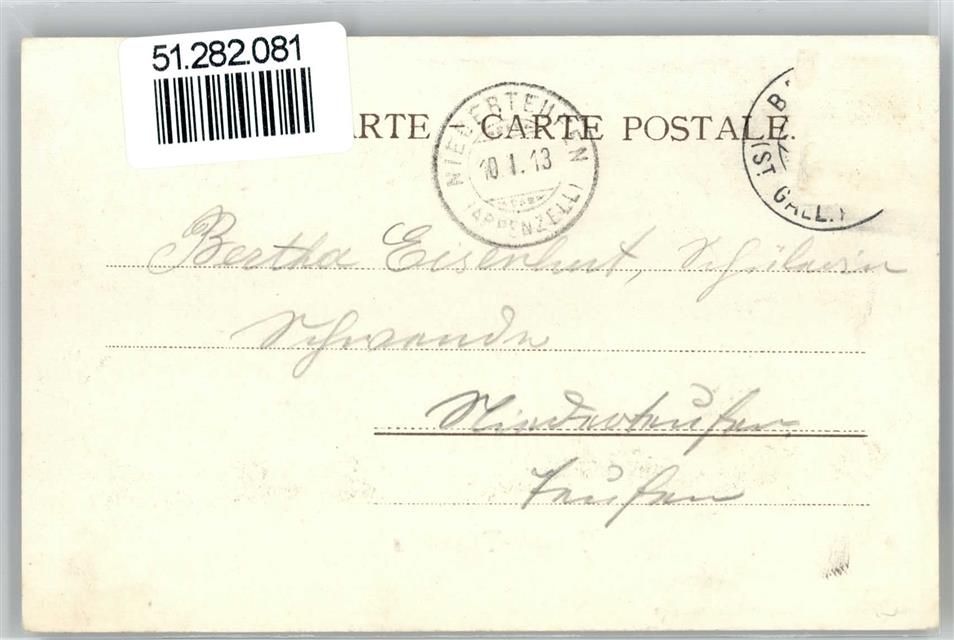 51.282.081
ARTE - CARTE POSTALE.
NIEDERTEUFEN
10.I.13
(APPENZELL)
(ST GALL.)
Bertha Eisenhut, Schülerin
Schwende
Niederteufen
Teufen